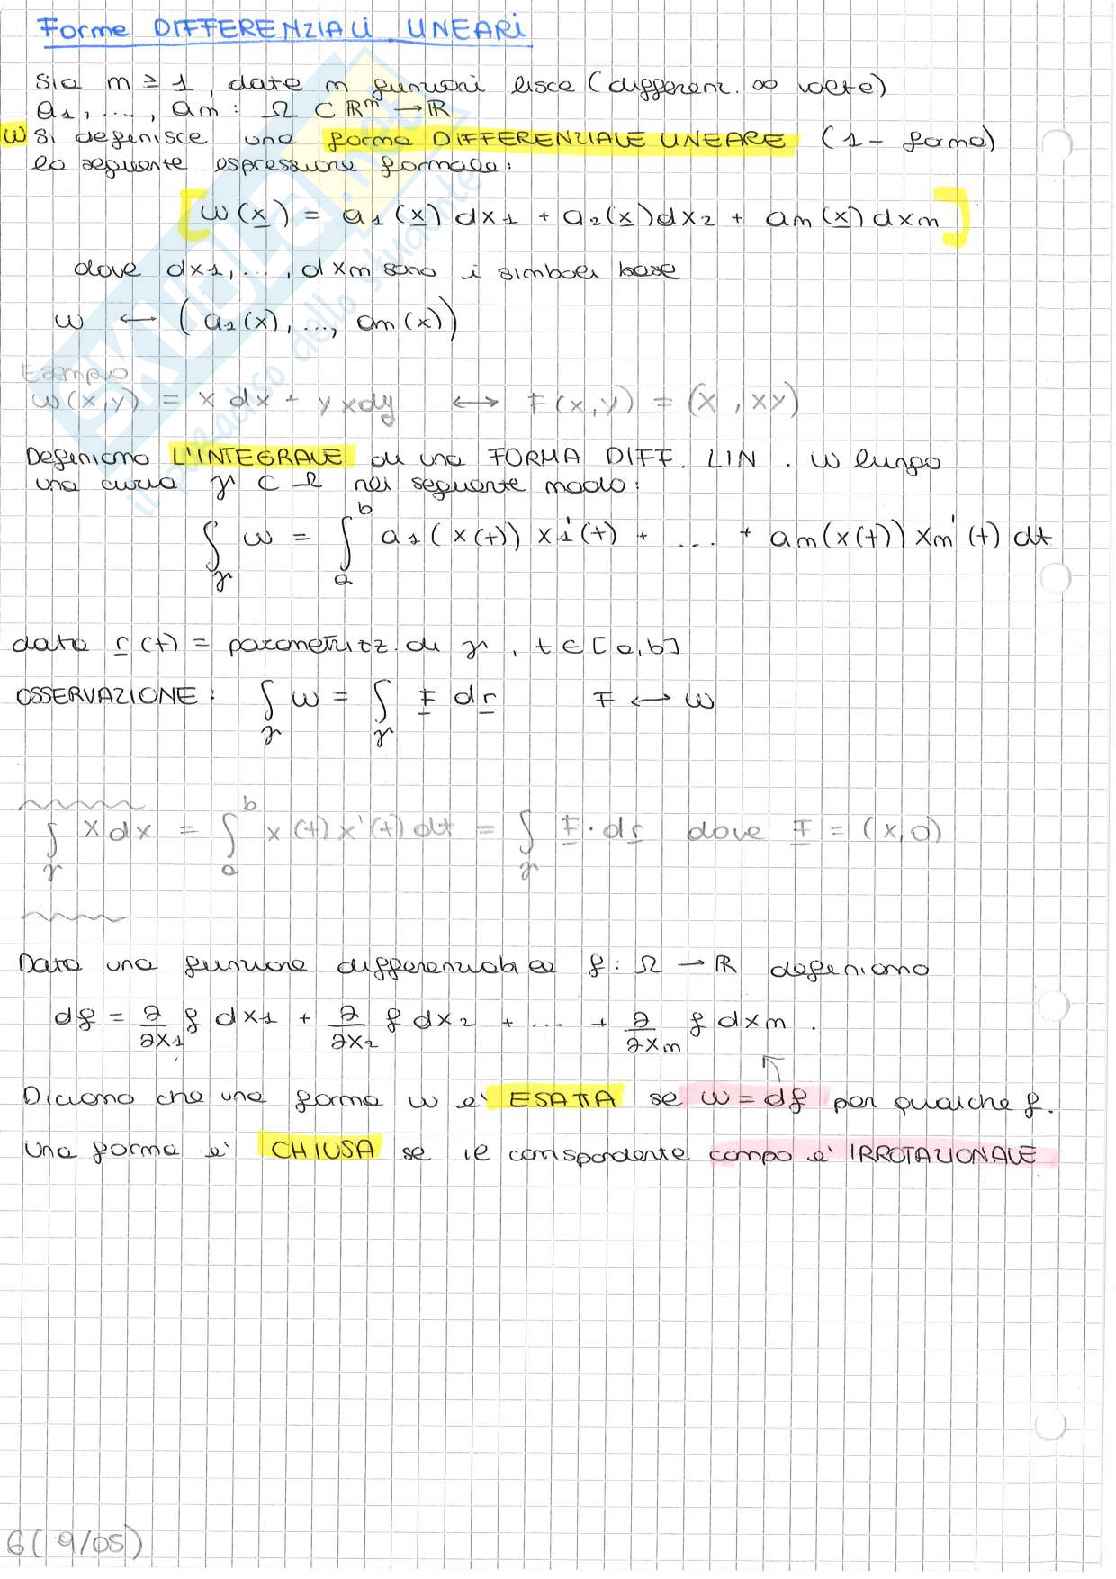 Forme DIFFERENZIALI LINEARI
Sia m ≥ 1, date m funzioni lisce (differenz. ∞ volte)
a1, ..., am : Ω ⊂ ℝ^m → ℝ
W Si definisce una forma DIFFERENZIALE LINEARE (1 - forma)
la seguente espressione formale:
[ω(x) = a1(x) dx1 + a2(x)dx2 + am(x) dxm]
dove dx1, ..., dxm sono i simboli base
ω ↔ (a1(x), ..., am(x))
Esempio
ω(x,y) = x dx + yxdy ↔ F(x,y) = (x, xy)
Definiamo L'INTEGRALE di una FORMA DIFF. LIN. ω lungo
una curva γ ⊂ Ω nel seguente modo:
∫γ ω = ∫_a^b a1(x(t)) x1'(t) + ... + am(x(t)) xm'(t) dt
data r(t) = parametrizz. di γ, t ∈ [a,b]
OSSERVAZIONE: ∫γ ω = ∫γ F dr F ↔ ω
∫γ xdx = ∫_a^b x(t)x'(t) dt = ∫γ F · dr dove F = (x,0)
Data una funzione differenziabile f: Ω → ℝ definiamo
df = ∂/∂x1 f dx1 + ∂/∂x2 f dx2 + ... + ∂/∂xm f dxm.
Diciamo che una forma ω è ESATTA se ω = df per qualche f.
Una forma è CHIUSA se il corrispondente campo è IRROTAZIONALE
6 (9/05)